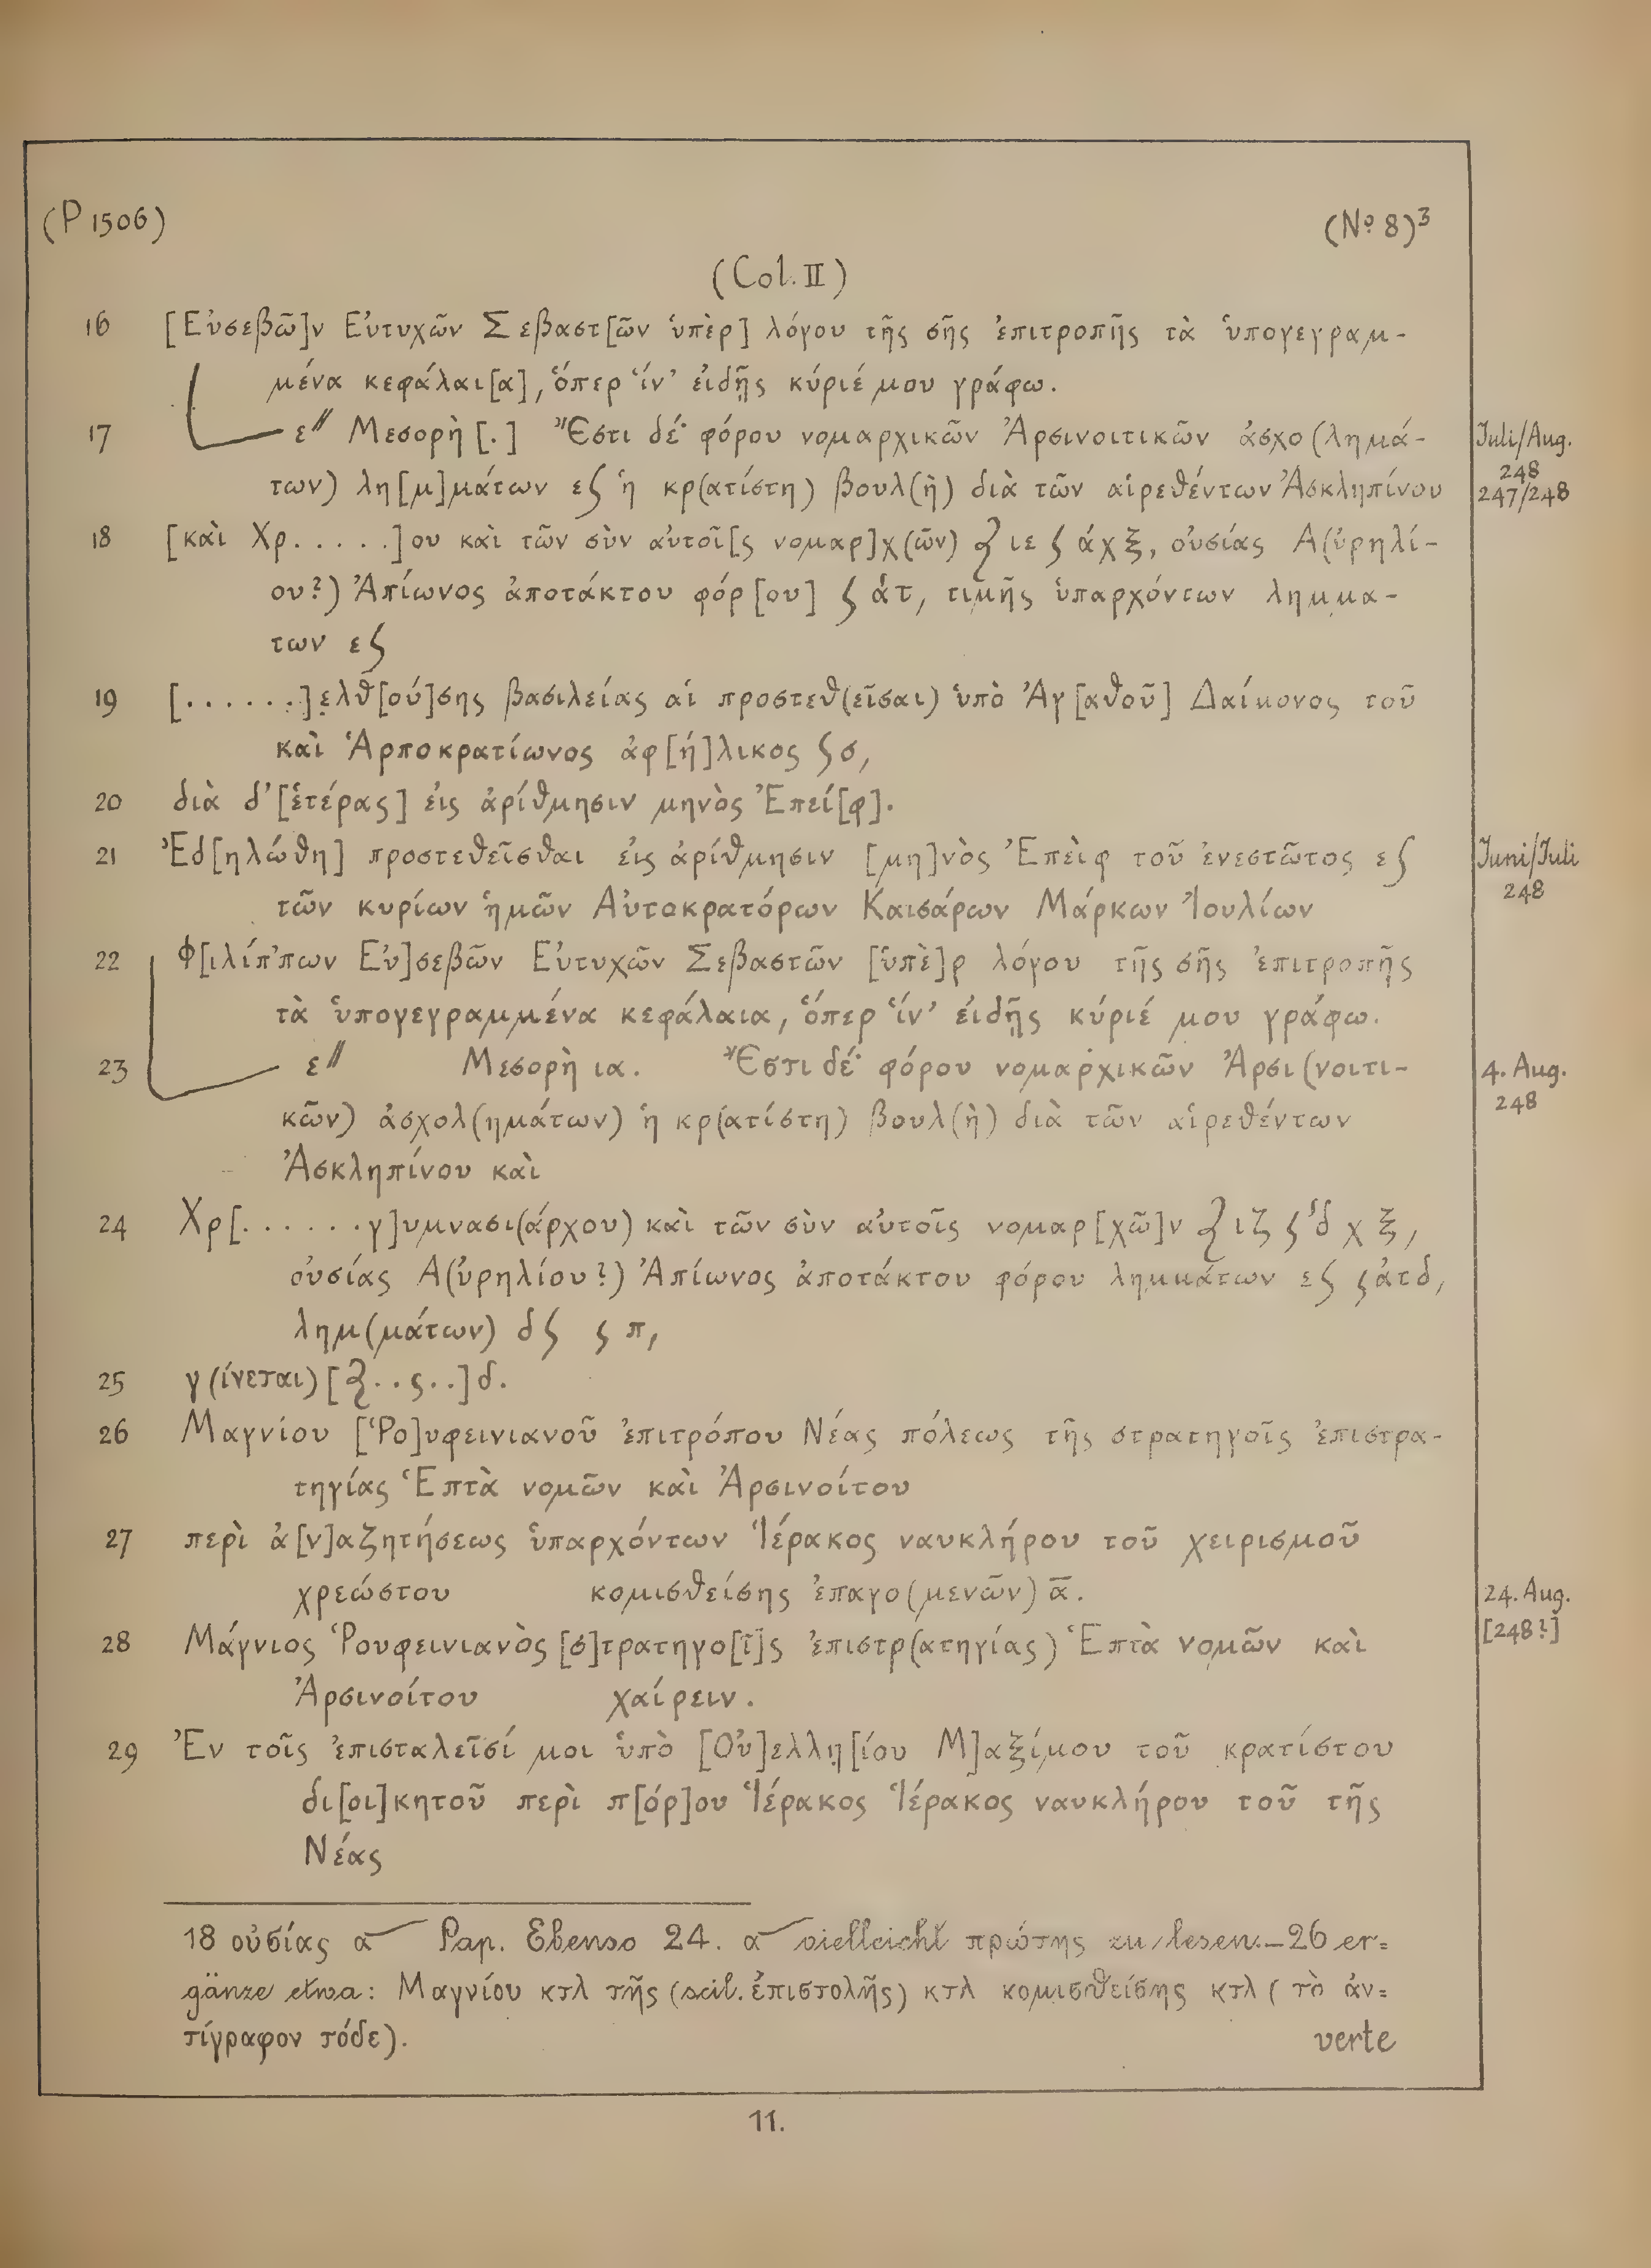 (P 1506) (No 8)³
(Col. II)
16 [Εὐσεβῶ]ν Εὐτυχῶν Σεβαστ[ῶν ὑπὲρ] λόγου τῆς σῆς ἐπιτροπῆς τὰ ὑπογεγραμ-
μένα κεφάλαι[α], ὅπερ ἵν' εἰδῇς κύριέ μου γράφω.
17 ε// Μεσορὴ [.] Ἔστι δέ· φόρου νομαρχικῶν Ἀρσινοιτικῶν ἀσχο(λημά- Juli/Aug.
248
των) λη[μ]μάτων εʃ ἡ κρ(ατίστη) βουλ(ὴ) διὰ τῶν αἱρεθέντων Ἀσκληπίνου 247/248
18 [καὶ Χρ.....]ου καὶ τῶν σὺν αὐτοῖ[ς νομαρ]χ(ῶν) ιε ʃ άχξ, οὐσίας Α(ὐρηλί-
ου?) Ἀπίωνος ἀποτάκτου φόρ[ου] ʃ άτ, τιμῆς ὑπαρχόντων λημμα-
των εʃ
19 [.......]ελθ[ού]σης βασιλείας αἱ προστεθ(εῖσαι) ὑπὸ Ἀγ[αθοῦ] Δαίμονος τοῦ
καὶ Ἁρποκρατίωνος ἀφ[ή]λικος ʃσ,
20 διὰ δ' [ἑτέρας] εἰς ἀρίθμησιν μηνὸς Ἐπεί[φ].
21 Ἐδ[ηλώθη] προστεθεῖσθαι εἰς ἀρίθμησιν [μη]νὸς Ἐπεὶφ τοῦ ἐνεστῶτος εʃ Juni/Juli
τῶν κυρίων ἡμῶν Αὐτοκρατόρων Καισάρων Μάρκων Ἰουλίων 248
22 Φ[ιλίππων Εὐ]σεβῶν Εὐτυχῶν Σεβαστῶν [ὑπὲ]ρ λόγου τῆς σῆς ἐπιτροπῆς
τὰ ὑπογεγραμμένα κεφάλαια, ὅπερ ἵν' εἰδῇς κύριέ μου γράφω.
23 ε// Μεσορὴ ια. Ἔστι δέ· φόρου νομαρχικῶν Ἀρσι(νοιτι- 4. Aug.
κῶν) ἀσχολ(ημάτων) ἡ κρ(ατίστη) βουλ(ὴ) διὰ τῶν αἱρεθέντων 248
Ἀσκληπίνου καὶ
24 Χρ[......γ]υμνασι(άρχου) καὶ τῶν σὺν αὐτοῖς νομαρ[χῶ]ν ιζ ς 'δ χ ξ,
οὐσίας Α(ὐρηλίου?) Ἀπίωνος ἀποτάκτου φόρου λημμάτων εʃ ςάτδ,
λημ(μάτων) δʃ ς π,
25 γ(ίνεται) [..ς..]δ.
26 Μαγνίου [Ῥο]υφεινιανοῦ ἐπιτρόπου Νέας πόλεως τῆς στρατηγοῖς ἐπιστρα-
τηγίας Ἑπτὰ νομῶν καὶ Ἀρσινοίτου
27 περὶ ἀ[ν]αζητήσεως ὑπαρχόντων Ἱέρακος ναυκλήρου τοῦ χειρισμοῦ
χρεώστου κομισθείσης ἐπαγο(μενῶν) ᾱ. 24. Aug.
28 Μάγνιος Ῥουφεινιανὸς [σ]τρατηγο[ῖ]ς ἐπιστρ(ατηγίας) Ἑπτὰ νομῶν καὶ [248?]
Ἀρσινοίτου χαίρειν.
29 Ἐν τοῖς ἐπισταλεῖσί μοι ὑπὸ [Οὐ]ελλη[ίου Μ]αξίμου τοῦ κρατίστου
δι[οι]κητοῦ περὶ π[όρ]ου Ἱέρακος Ἱέρακος ναυκλήρου τοῦ τῆς
Νέας
18 οὐσίας α Pap. Ebenso 24. α vielleicht πρώτης zu lesen. – 26 er=
gänze etwa: Μαγνίου κτλ τῆς (scil. ἐπιστολῆς) κτλ κομισθείσης κτλ (τὸ ἀν=
τίγραφον τόδε). verte
11.